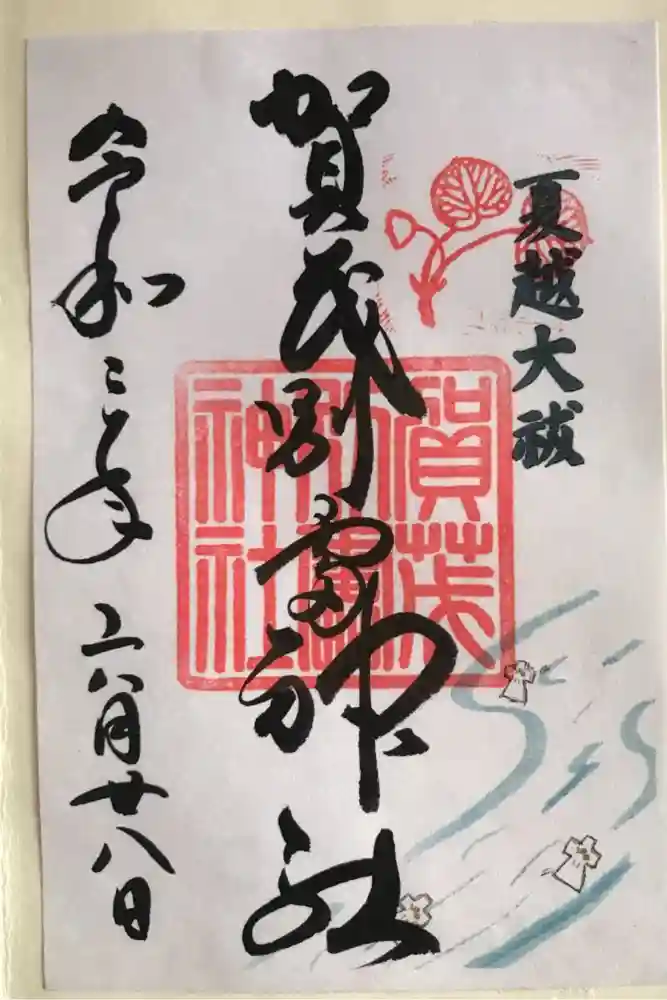 夏越大祓
賀茂別雷神社
賀茂
別雷
神社
令和二年六月廿八日